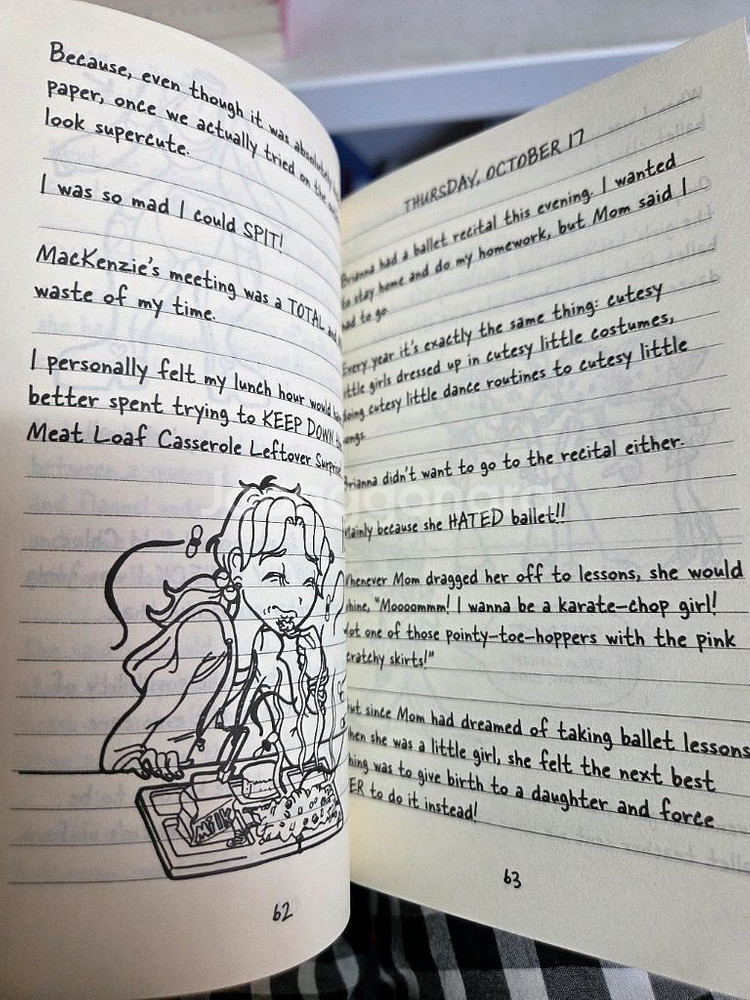 Because, even though it was absolutely
paper, once we actually tried on the
look supercute.
I was so mad I could SPIT!
MacKenzie's meeting was a TOTAL
waste of my time.
I personally felt my lunch hour would
better spent trying to KEEP DOWN
Meat Loaf Casserole Leftover Surprise
MILK
62
THURSDAY, OCTOBER 17
Brianna had a ballet recital this evening. I wanted
to stay home and do my homework, but Mom said I
had to go.
Every year it's exactly the same thing: cutesy
little girls dressed up in cutesy little costumes,
doing cutesy little dance routines to cutesy little
songs.
Brianna didn't want to go to the recital either.
Mainly because she HATED ballet!!
Whenever Mom dragged her off to lessons, she would
whine, "Moooommm! I wanna be a karate-chop girl!
Not one of those pointy-toe-hoppers with the pink
scratchy skirts!"
But since Mom had dreamed of taking ballet lessons
when she was a little girl, she felt the next best
thing was to give birth to a daughter and force
HER to do it instead!
63